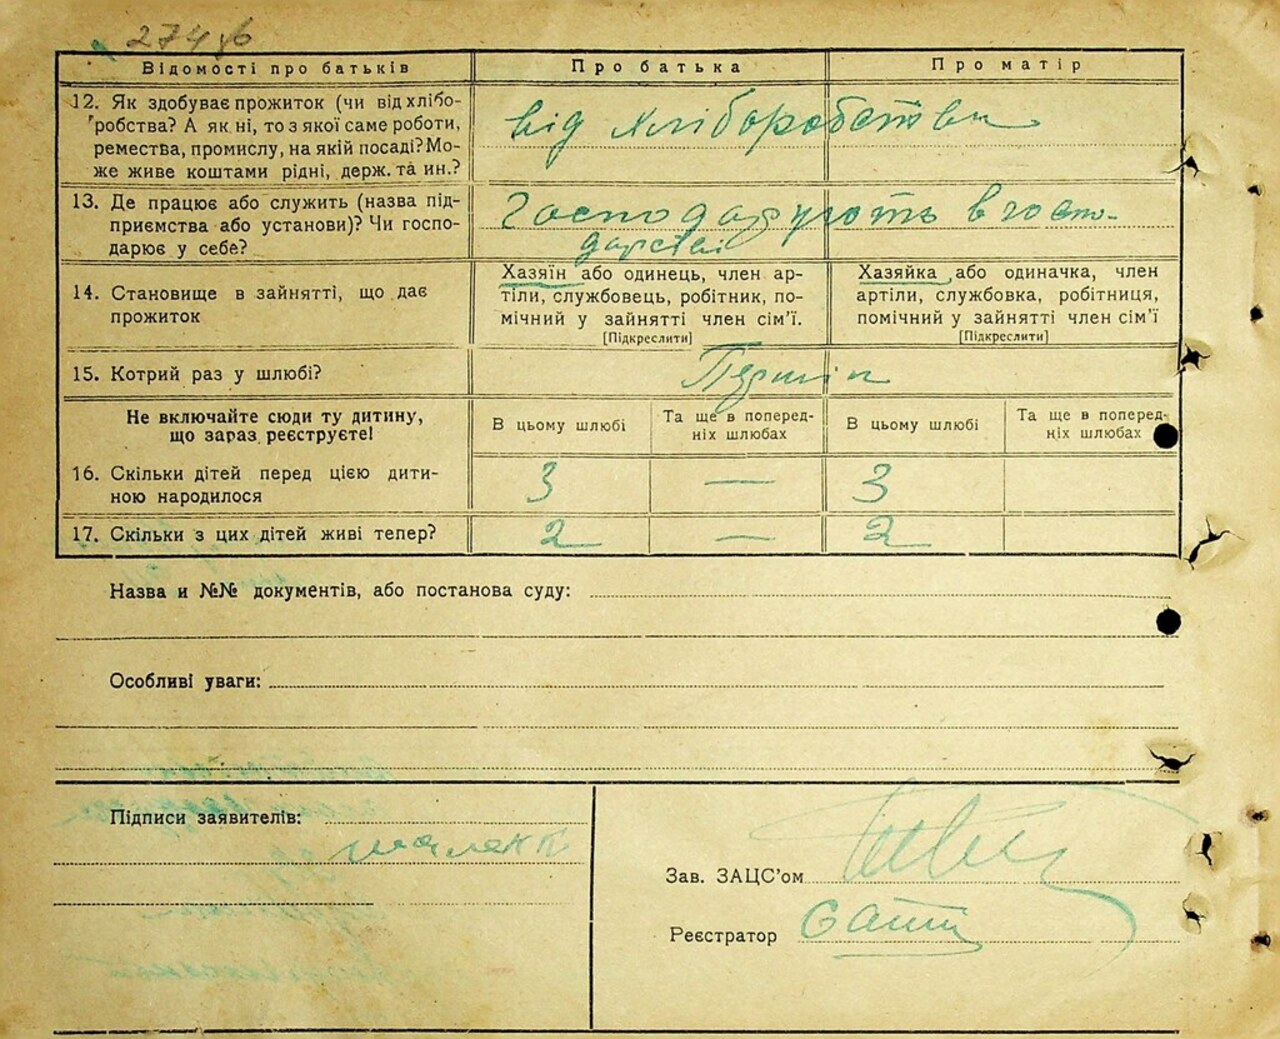 274
Відомості про батьків
Про батька
Про матір
12. Як здобуває прожиток (чи від хлібо-
робства? А як ні, то з якої саме роботи,
ремества, промислу, на якій посаді? Мо-
же живе коштами рідні, держ. та ин.?
від хліборобства
13. Де працює або служить (назва підприємства
приємства або установи)? Чи госпо-
дарює у себе?
Господарують в госпо-
дарстві
14. Становище в зайнятті, що дає
прожиток
Хазяїн або одинець, член ар-
тіли, службовець, робітник, по-
мічний у зайнятті член сім’ї.
[Підкреслити]
Хазяйка або одиначка, член
артіли, службовка, робітниця,
помічний у зайнятті член сім’ї
[Підкреслити]
15. Котрий раз у шлюбі?
Не включайте сюди ту дитину,
що зараз реєструєте!
В цьому шлюбі
Та ще в поперед-
ніх шлюбах
В цьому шлюбі
Та ще в поперед-
ніх шлюбах
16. Скільки дітей перед цією дити-
ною народилося
3 — 3
17. Скільки з цих дітей живі тепер?
2 — 2
Назва и №№ документів, або постанова суду:
Особливі уваги:
Підписи заявителів:
Зав. ЗАЦС’ом
Реєстратор